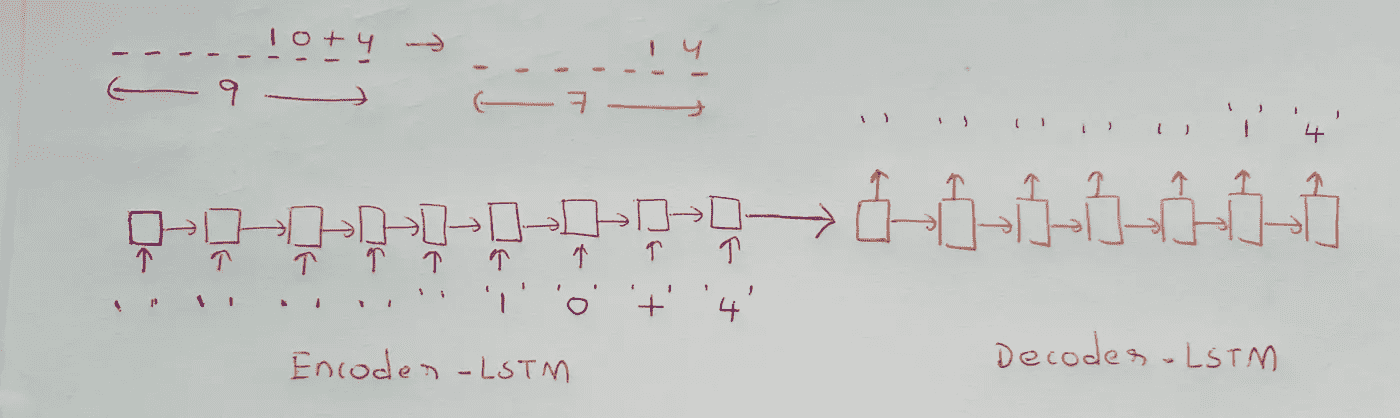 10+4 → 14
← 9 → ← 7 →
' ' ' ' ' ' ' ' ' ' '1' '4'
' ' ' ' ' ' ' ' ' ' '1' '0' '+' '4'
Encoder-LSTM Decoder-LSTM